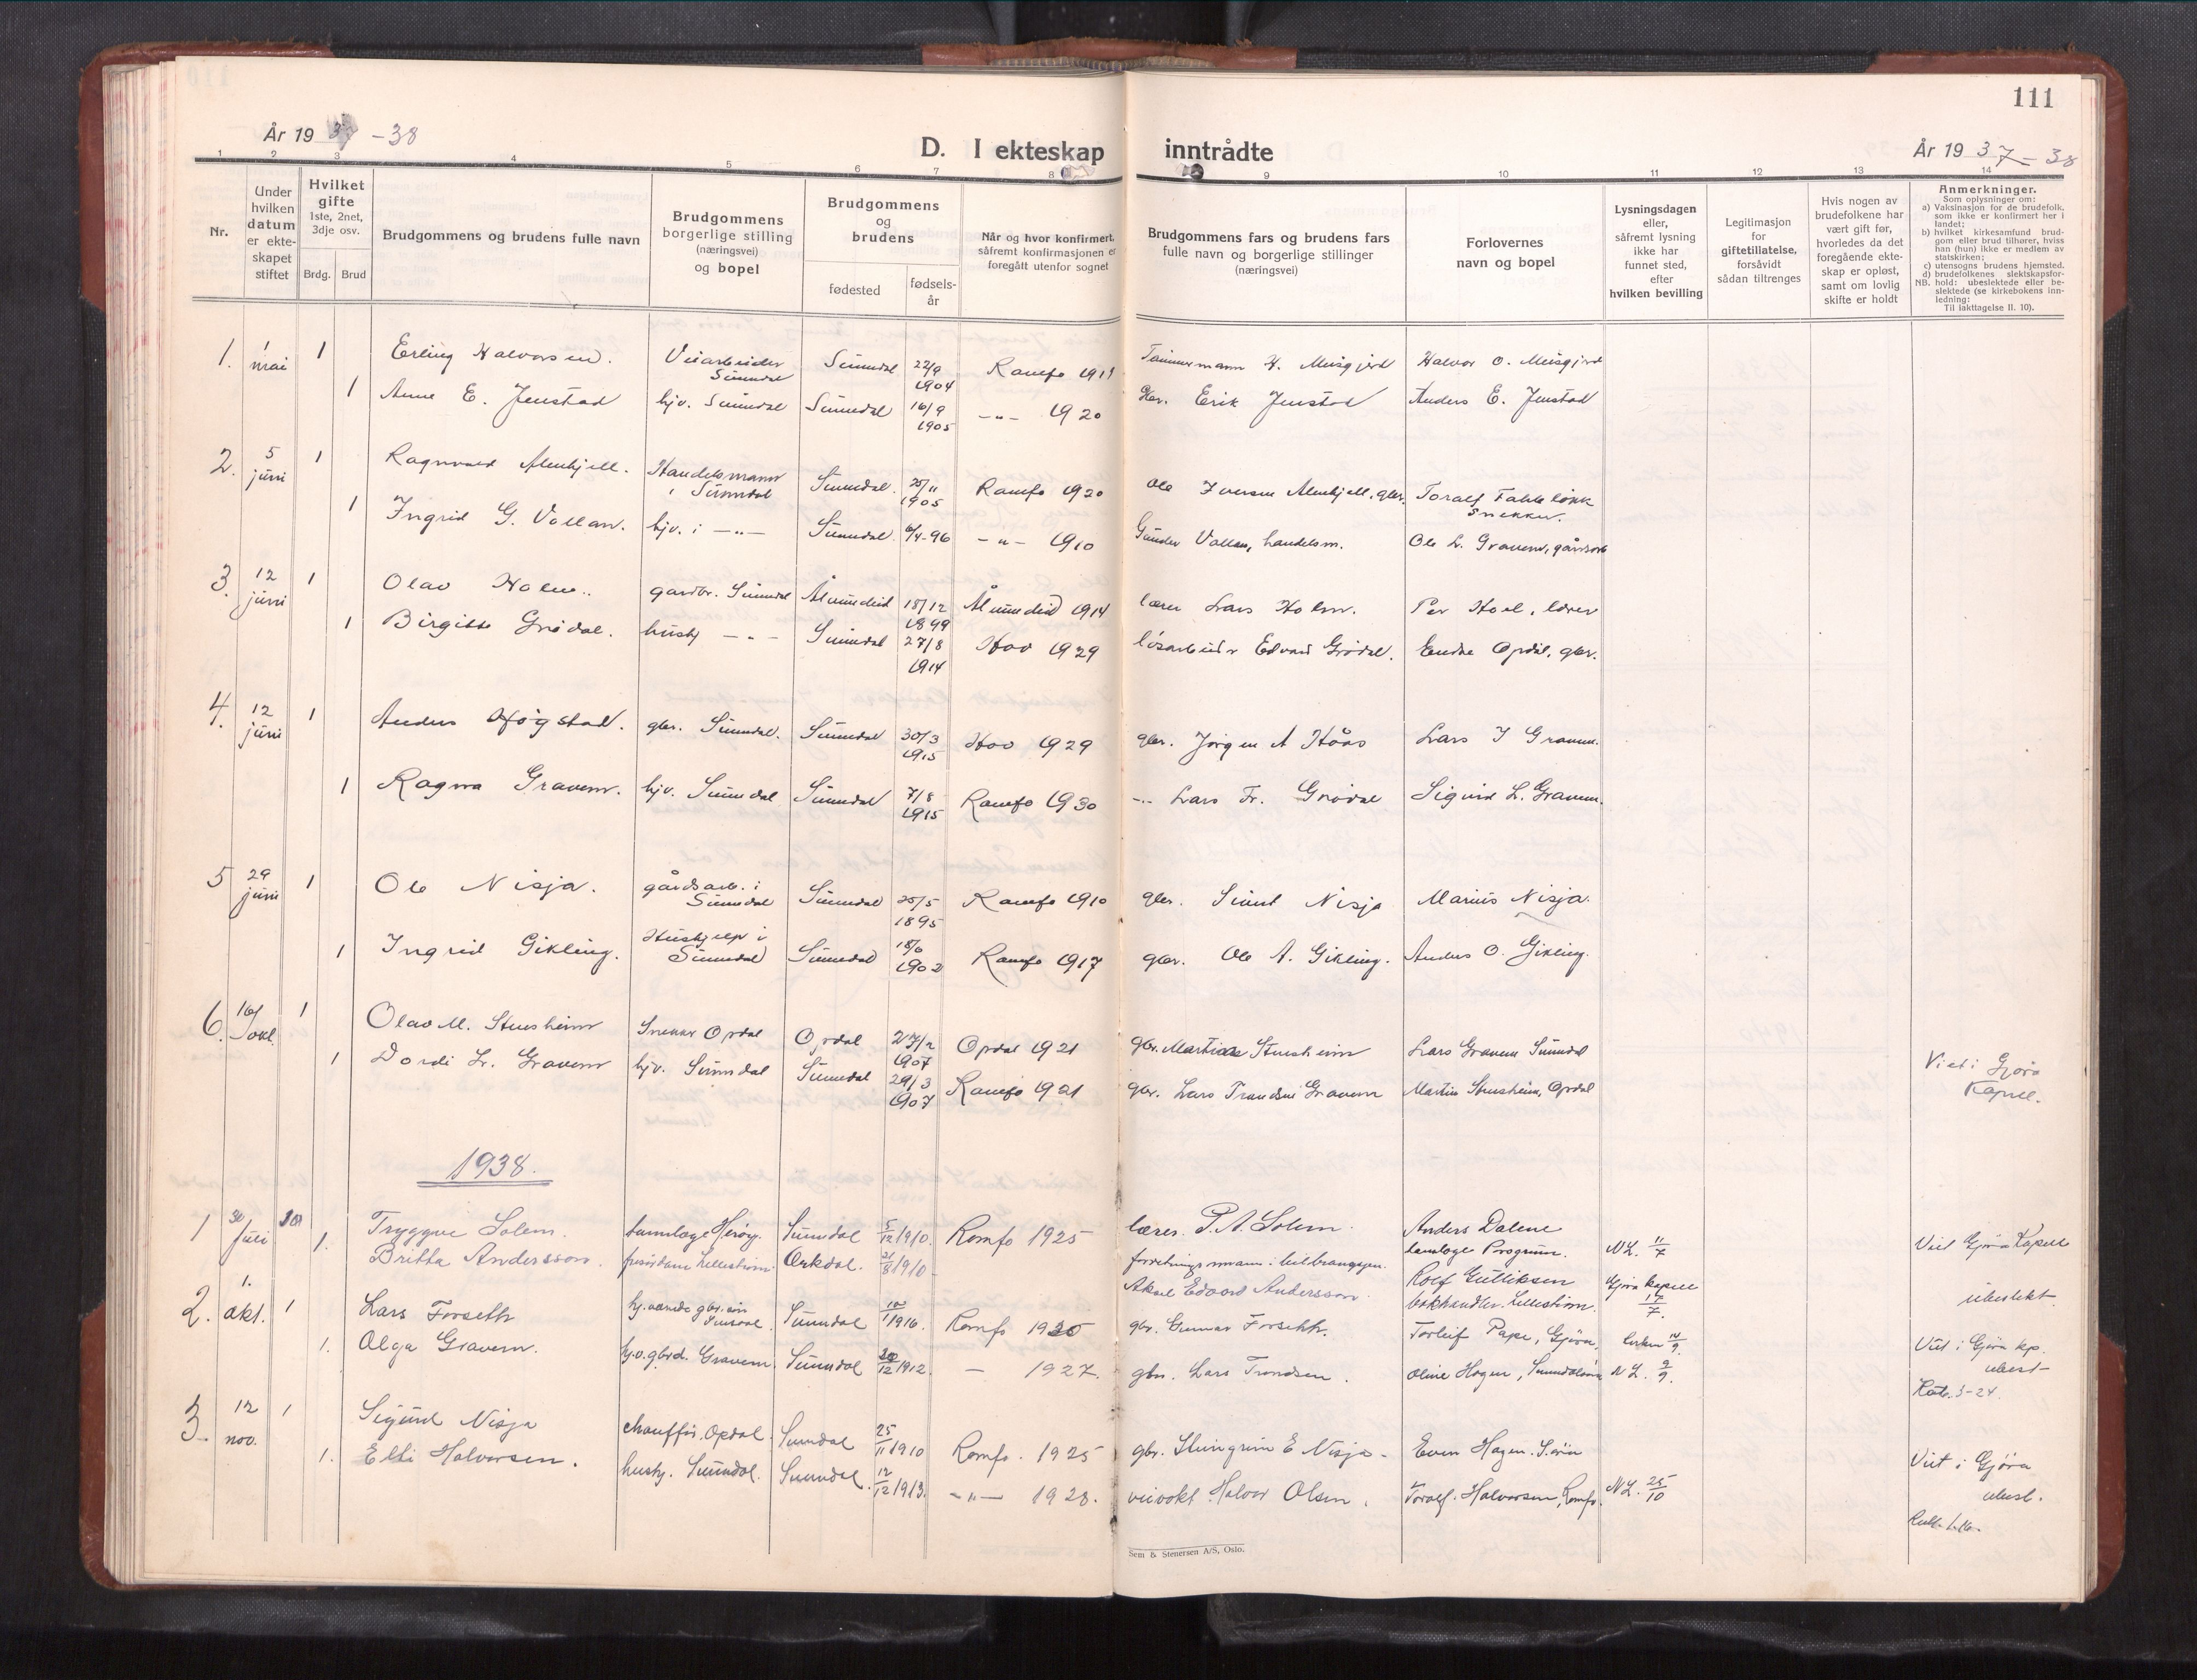 111
År 1937-38
D. I ekteskap inntrådte
År 1937-38
1 2 3 4 5 6 7 8 9 10 11 12 13 14
Nr.
Under hvilken datum er ekteskapet stiftet
Hvilket gifte 1ste, 2net, 3dje osv.
Brdg. Brud
Brudgommens og brudens fulle navn
Brudgommens borgerlige stilling (næringsvei) og bopel
Brudgommens og brudens
fødested
fødselsår
Når og hvor konfirmert, såfremt konfirmasjonen er foregått utenfor sognet
Brudgommens fars og brudens fars fulle navn og borgerlige stillinger (næringsvei)
Forlovernes navn og bopel
Lysningsdagen eller, såfremt lysning ikke har funnet sted, efter hvilken bevilling
Legitimasjon for giftetillatelse, forsåvidt sådan tiltrenges
Hvis nogen av brudefolkene har vært gift før, hvorledes da det foregående ekteskap er opløst, samt om lovlig skifte er holdt
Anmerkninger.
Som oplysninger om:
a) Vaksinasjon for de brudefolk, som ikke er konfirmert her i landet;
b) hvilket kirkesamfund brudgom eller brud tilhører, hviss han (hun) ikke er medlem av statskirken;
c) utensogns brudens hjemsted.
d) brudefolkenes slektskapsforhold: ubeslektede eller beslektede (se kirkebokens innledning:
NB.
Til iakttagelse II. 10).
1. 1 mai 1 Erling Halvorsen. Veiarbeider Sunndal Sunndal 22/9 1904 Romfo 1919 Tømmermann H. Musgjerd Halvor O. Musgjerd
1 Anne E. Jenstad hjv. Sunndal Sunndal 16/9 1905 -"- 1920 gbr. Erik Jenstad Anders E. Jenstad
2. 5 juni 1 Ragnvald Almskjell. Handelsmann i Sunndal Sunndal 25/11 1905 Romfo 1920 Ole Iversen Almskjell, gbr. Toralf Fahleløkk Snekker.
1 Ingrid G. Vollan. hjv. i -"- Sunndal 6/4-96 -"- 1910 Gunder Vollan, handelsm. Ole L. Gravem, gårdsarb
3. 12 juni 1 Olav Holm. gardbr. Sunndal Ålvundeid 18/12 1899 Ålvundeid 1914 lærer Lars Holm. Per Hoel, lærer
1 Birgitte Grødal. hushj -"- Sunndal 27/8 1914 Hov 1929 løsarbeider Edvard Grødal. Endre Opdøl, gbr.
4. 12 juni 1 Anders Høgstad. gbr. Sunndal. Sunndal 30/3 1915 Hov 1929 gbr. Jørgen A Håås Lars I Gravem.
1 Ragna Gravem. hjv. Sunndal Sunndal 7/8 1915 Romfo 1930 -"- Lars Tr. Grødal Sigurd L. Gravem.
5 29 juni 1 Ole Nisja. gårdsarb. i Sunndal Sunndal 25/5 1895 Romfo 1910 gbr. Sivert Nisja Marius Nisja.
1 Ingrid Gikling. Hushjelp i Sunndal Sunndal 18/6 1902 Romfo 1917 gbr. Ole A. Gikling. Anders O. Gikling.
6. 16/okt. 1 Olav M. Stuesheim Snekker Opdal Opdal 27/2 1907 Opdal 1921 gbr. Martin Stuesheim Lars Gravem Sunndal
1 Dordi Lr. Gravem hjv. Sunndal Sunndal 29/3 1907 Romfo 1921 gbr. Lars Trondsen Gravem Martin Stuesheim, Opdal Viet i Gjøra Kapell.
1938.
1 30/juli Tryggve Solem. tannlæge Herøy. Sunndal 5/12 1910. Romfo 1925 lærer. P. A. Solem. Anders Dalene NL. 11/7 Viet Gjøra Kapell
1. Britta Andersson. frisørdame Lillestrøm. Orkdal. 21/8 1910 forretningsmann i bilbransjen. Aksel Edvard Andersson. Rolf Gulliksen bokhandler. Lillestrøm. Gjøra kapell 17/7. ubeslekt.
2. 1. okt. 1 Lars Forseth Sunndal 1916. Romfo 1930 gbr. Gunnar Forseth. Torleif Pape, Gjøra, kirken 9. Viet i Gjøra kp.
1. Olga Gravem. hj. v. gbrd. Gravem. Sunndal 20/12 1912. - 1927. gbr. Lars Trondsen. Oline Hagen, NL. 2/9. ubesl-
3. 12 nov. 1 Sigurd Nisja chauffør. Opdal. Sunndal 25/11 1910 Romfo. 1925 gbr. E Nisja- Even Hagen.
1. Elli Halvorsen. hushj. Sunndal. Sunndal. 12/12 1913. -"- 1928. veivokt. Halvor Olsen. Toralf. Halvorsen, Romfo. NL. 25/10 Viet i Gjøra ubesl.
Sem & Stenersen A/S, Oslo.